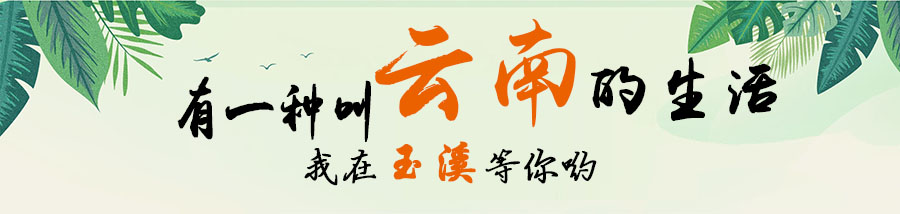 有一种叫云南的生活
我在玉溪等你哟